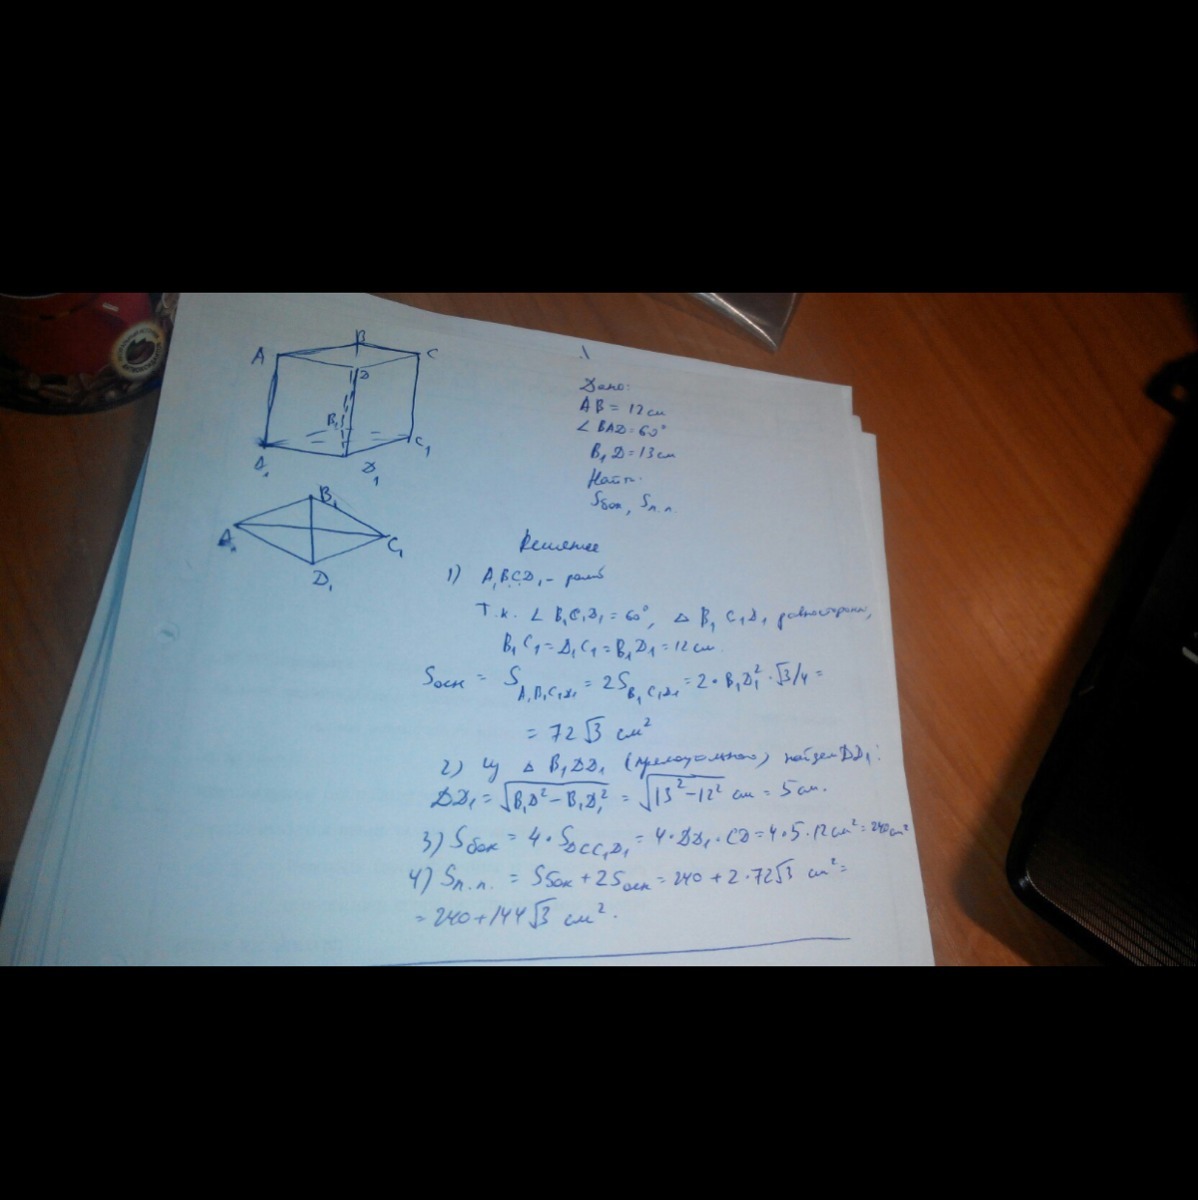 A B C
D
B₁
A₁ D₁ C₁
B₁
A₁ C₁
D₁
Дано:
AB = 12 см
∠ BAD = 60°
B₁D = 13 см
Найти:
Sбок, Sп.п.
Решение
1) A₁B₁C₁D₁ - ромб
Т.к. ∠ B₁C₁D₁ = 60°, △ B₁C₁D₁ равносторонн,
B₁C₁ = D₁C₁ = B₁D₁ = 12 см.
Sосн = S A₁B₁C₁D₁ = 2S B₁C₁D₁ = 2 · B₁D₁² · √3/4 =
= 72√3 см²
2) Из △ B₁DD₁ (прямоугольного) найдем DD₁:
DD₁ = √B₁D² - B₁D₁² = √13² - 12² см = 5 см.
3) Sбок = 4 · S DCC₁D₁ = 4 · DD₁ · CD = 4 · 5 · 12 см² = 240 см²
4) Sп.п. = Sбок + 2Sосн = 240 + 2 · 72√3 см² =
= 240 + 144√3 см².